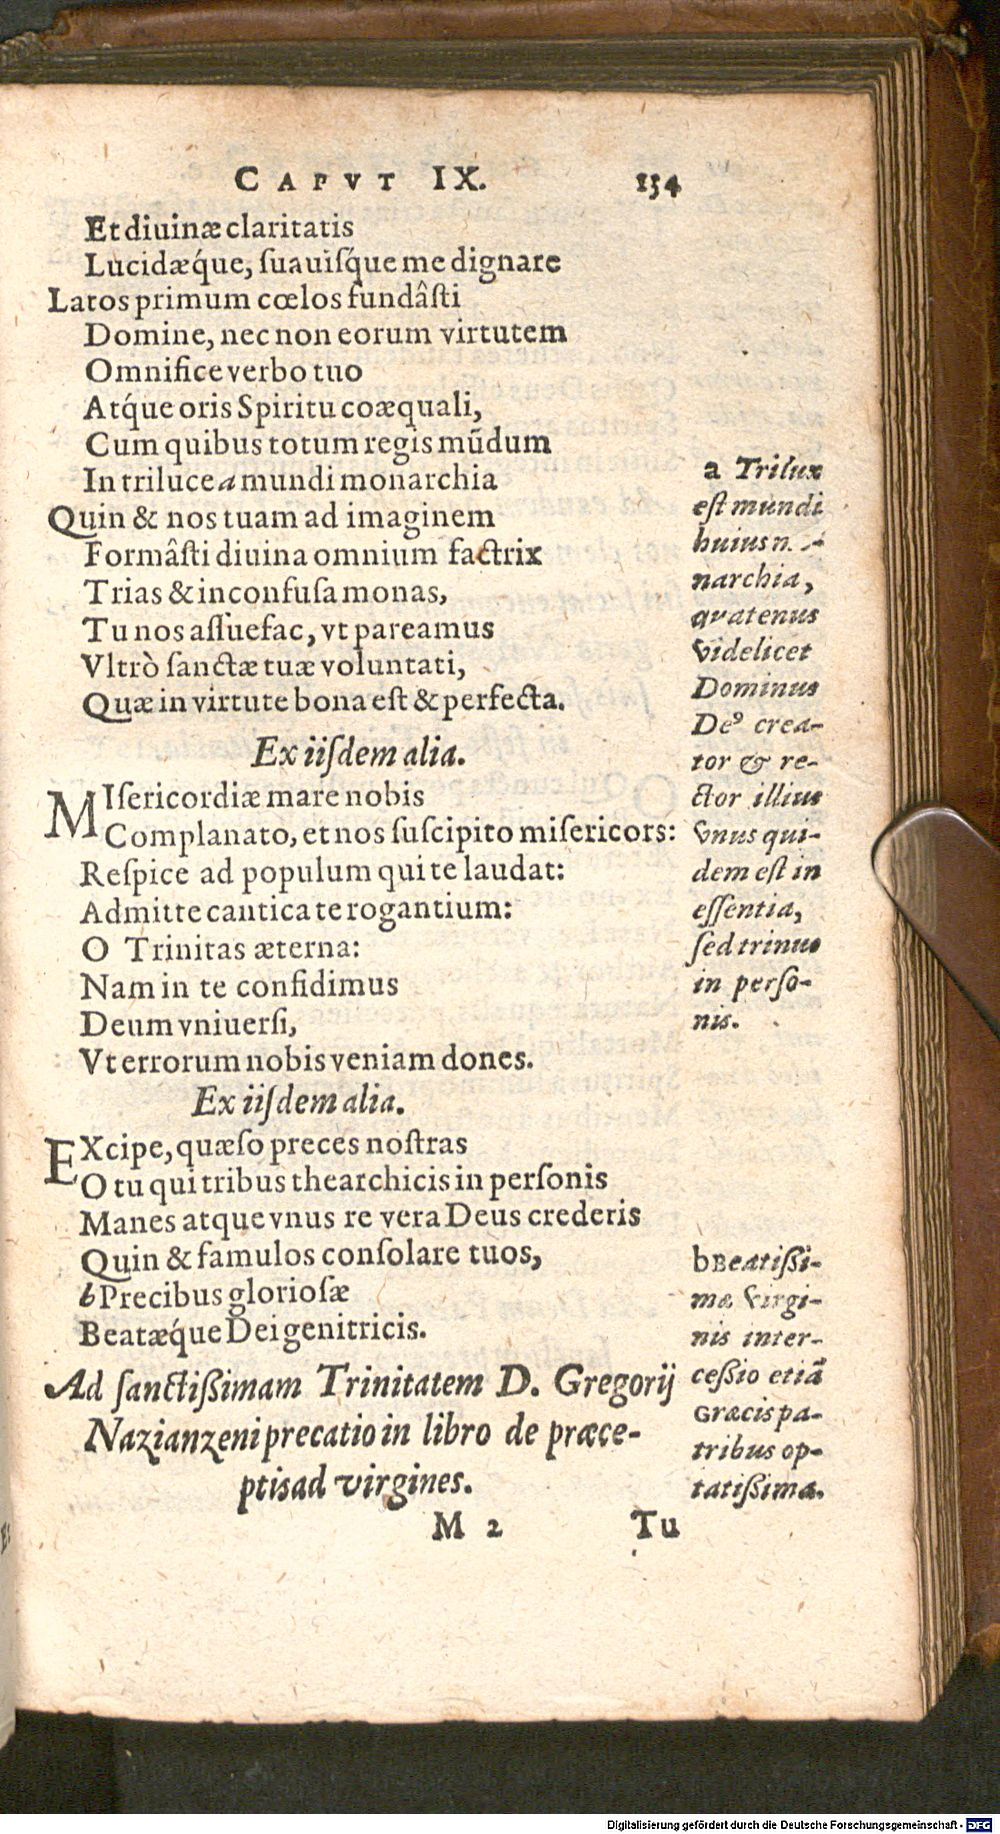 CAPVT IX. 134
Et diuinæ claritatis
Lucidæq́ue, ſuauiſq́ue me dignare
Latos primum cœlos fundâſti
Domine, nec non eorum virtutem
Omnifice verbo tuo
Atq́ue oris Spiritu coæquali,
Cum quibus totum regis mũdum
In triluce a mundi monarchia
Quin & nos tuam ad imaginem
Formâſti diuina omnium factrix
Trias & inconfuſa monas,
Tu nos aſſuefac, vt pareamus
Vltrò ſanctæ tuæ voluntati,
Quæ in virtute bona eſt & perfecta.
Ex iiſdem alia.
MIſericordiæ mare nobis
Complanato, et nos ſuſcipito miſericors:
Reſpice ad populum qui te laudat:
Admitte cantica te rogantium:
O Trinitas æterna:
Nam in te confidimus
Deum vniuerſi,
Vt errorum nobis veniam dones.
Ex iiſdem alia.
EXcipe, quæſo preces noſtras
O tu qui tribus thearchicis in perſonis
Manes atque vnus re vera Deus crederis
Quin & famulos conſolare tuos,
b Precibus glorioſæ
Beatæq́ue Deigenitricis.
Ad ſanctißimam Trinitatem D. Gregorij
Nazianzeni precatio in libro de præce-
ptis ad virgines.
M 2 Tu
a Trilux
eſt mundi
huius
narchia,
quatenus
videlicet
Dominus
Deꝰ crea-
tor & re-
ctor illius
vnus qui-
dem eſt in
eſſentia,
ſed trinus
in perſo-
nis.
b Beatißi-
mæ Virgi-
nis inter-
ceßio etiã
Græcis pa-
tribus op-
tatißima.
Digitalisierung gefördert durch die Deutsche Forschungsgemeinschaft - DFG